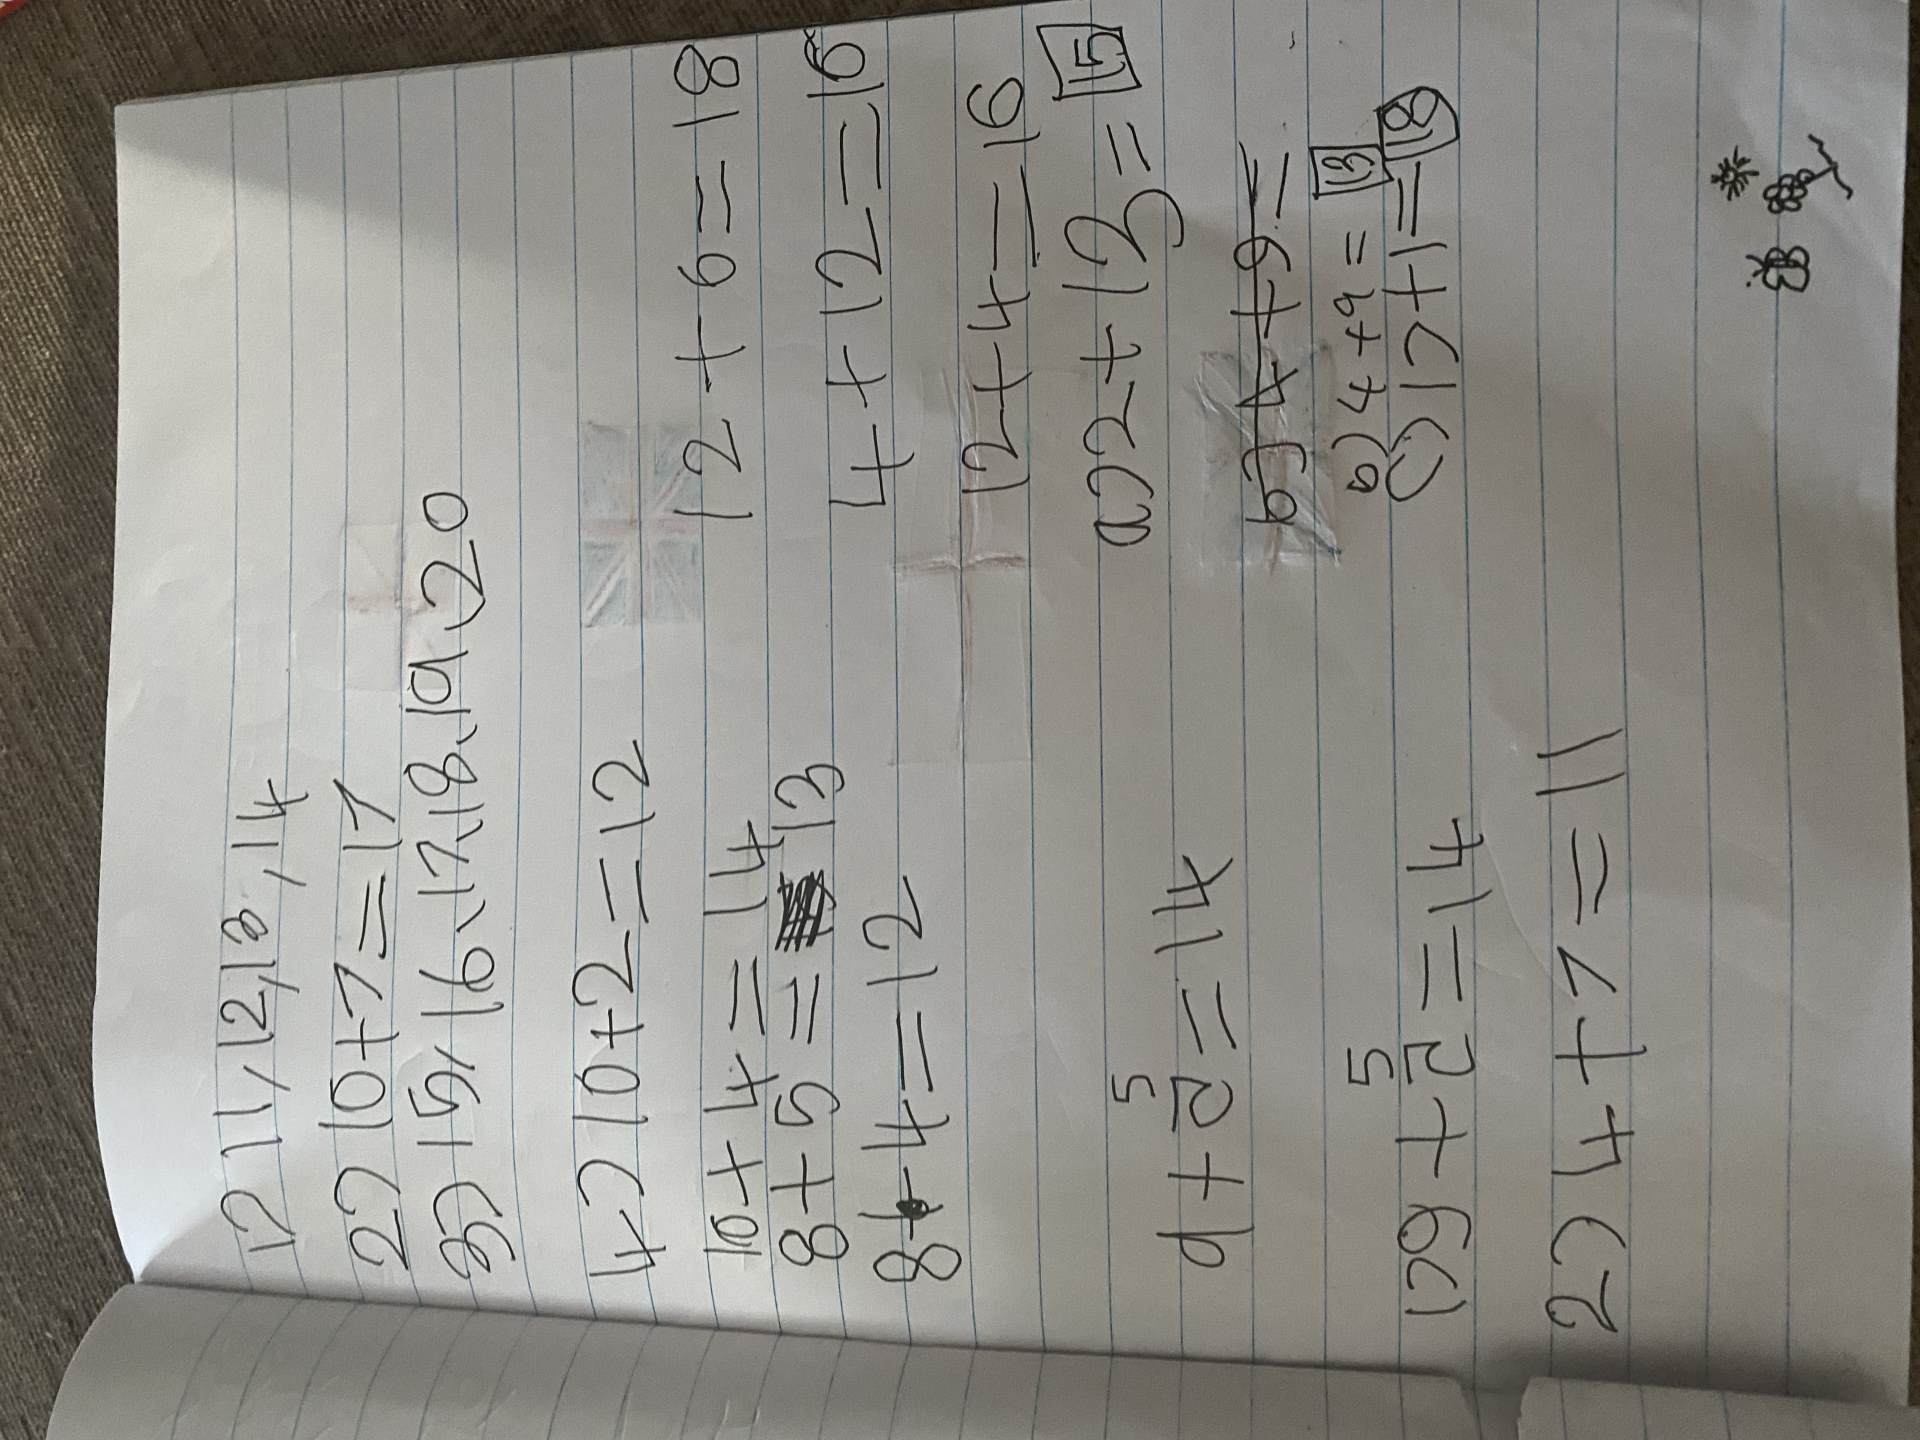 1) 11, 12, 13, 14
2) 10+7=17
3) 15, 16, 17, 18, 19, 20
4) 10+2=12
10+4=14
8+5=13
8+4=12
5
9+5=14
5
1) 9+5=14
2) 4+7=11
12+6=18
4+12=16
12+4=16
a) 2+13=15
b) 4+9=
b) 4+9=13
c) 17+1=18